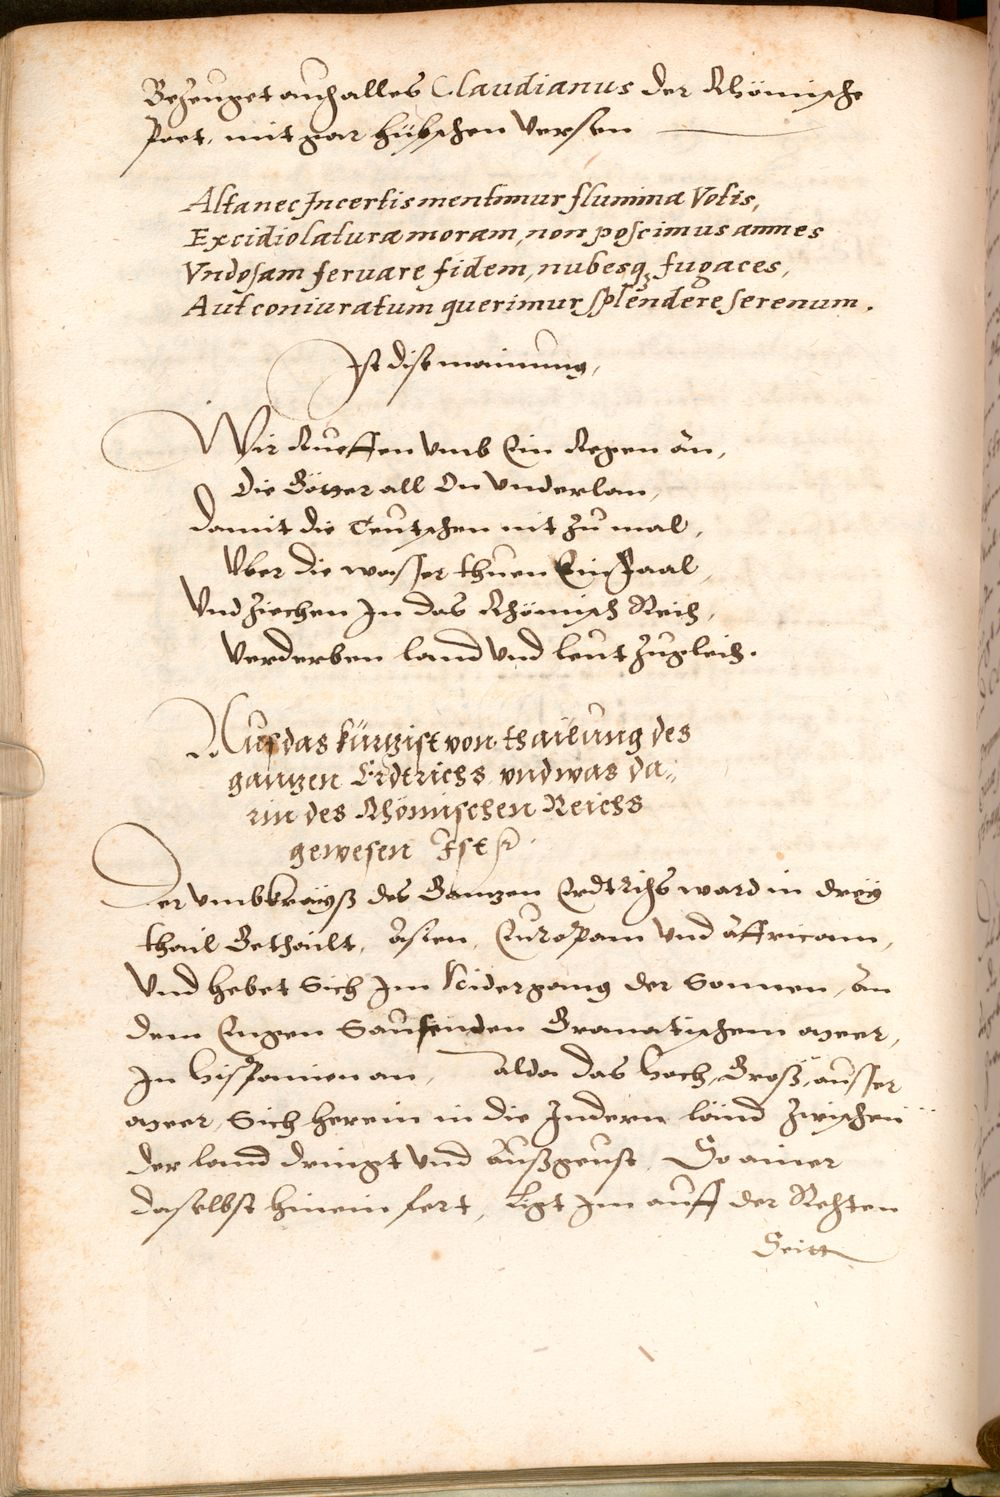 Bezeuget auch alles Claudianus der Rhömische
Poet, mit gar hübschen Versen
Altanec Incertis mentimur flumina Votis,
Excidio latura moram, non poscimus amnes
Vndosam seruare fidem, nubesq fugaces,
Aut coniuratum querimur splendere serenum.
Ist dise mainung,
Wir Rueffen vmb Ein Regen an,
Die Götter all On vnderlan,
Damit die Teutschen nit zu mal,
Vber die wasser thuen Ein Faal,
Vnd ziechen In das Rhömisch Reich,
Verderben land vnd leut zugleich.
Auf das kürtzist von thailung des
gantzen Erdtrichs vnd was da-
rin des Rhömischen Reichs
gewesen Ist
Der vmbkrayß des Gantzen Erdtrichs ward in drey
thail Gethailt, Asien, Europam vnd Affricam,
Vnd hebet Sich Im Nidergang der Sonnen, an
dem Engen Sausenden Granatischem meer,
In Hispanien an, alda das hoch, Groß, ausser
meer, Sich herein in die Indern länd zwischen
der land dringt vnd Außgeust. So ainer
daselbst hinein fert, ligt Im auff der Rechten
Seitt